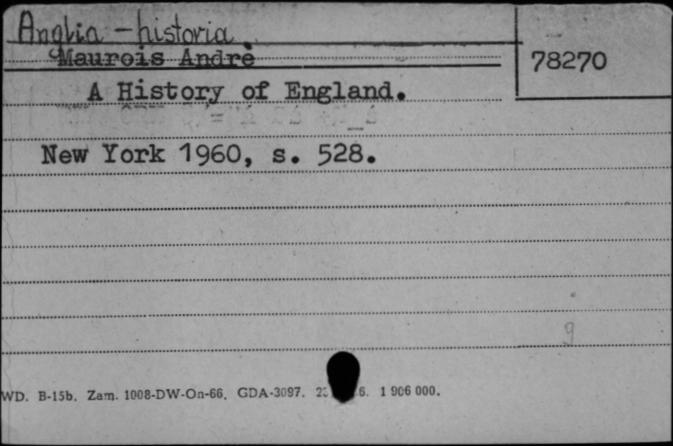 Anglia - historia
Maurois Andre
78270
A History of England.
New York 1960, s. 528.
g
WD. B-15b. Zam. 1008-DW-On-66. GDA-3097. 6. 1 906 000.